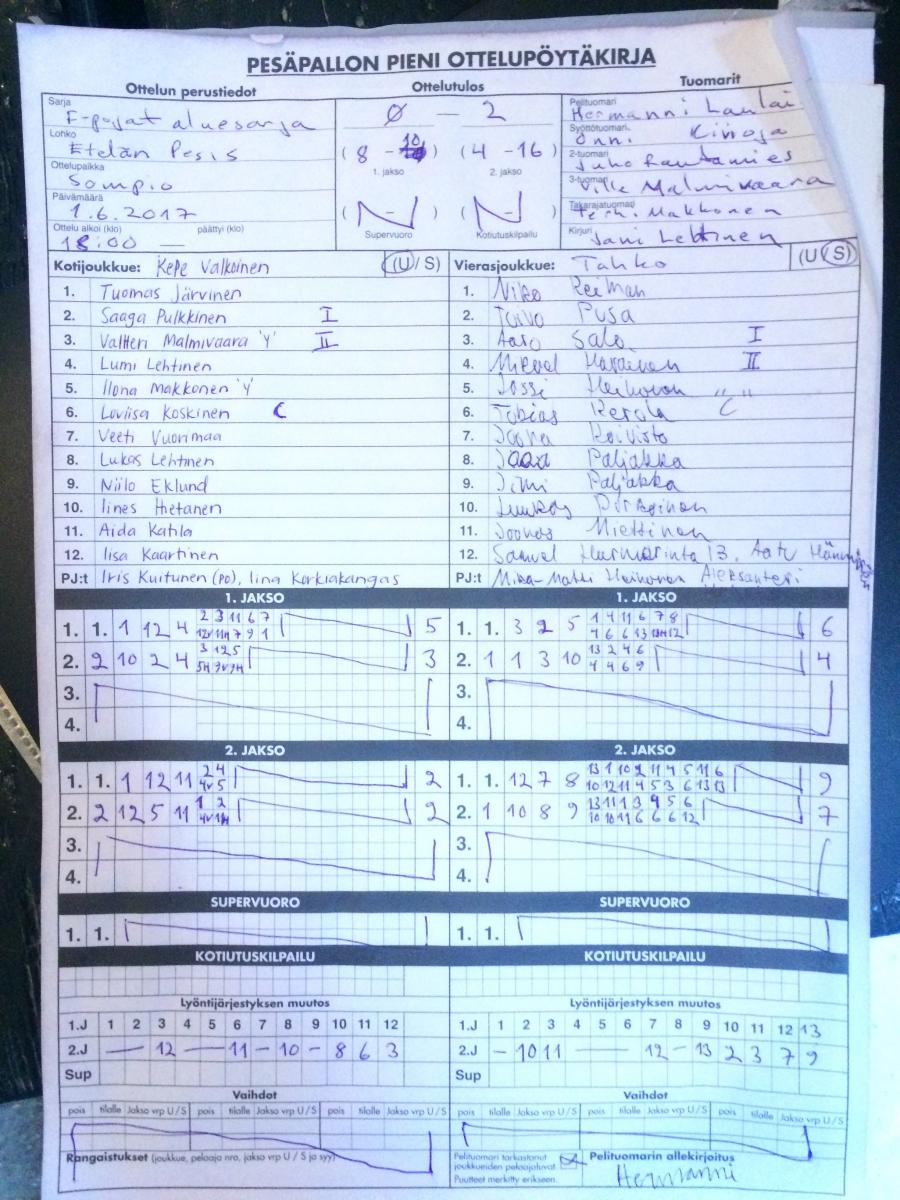 PESÄPALLON PIENI OTTELUPÖYTÄKIRJA
Ottelun perustiedot Ottelutulos Tuomarit
Sarja
F-pojat aluesarja
Lohko
Etelän Pesis
Ottelupaikka
Sompio
Päivämäärä
1.6.2017
Ottelu alkoi (klo) päättyi (klo)
18:00 —
0 — 2
(8 - 10) (4 - 16)
1. jakso 2. jakso
( - ) ( - )
Supervuoro Kotiutuskilpailu
Pelituomari
Hermanni
Syöttötuomari
Onni Kinoja
2-tuomari
Juho Rautamies
3-tuomari
Ville Malmivaara
Takarajatuomari
Makkonen
Kirjuri
Jani Lehtinen
Kotijoukkue: Kepe Valkoinen (U / S)
1. Tuomas Järvinen
2. Saaga Pulkkinen I
3. Valtteri Malmivaara 'Y' II
4. Lumi Lehtinen
5. Ilona Makkonen 'Y'
6. Loviisa Koskinen C
7. Veeti Vuorimaa
8. Lukas Lehtinen
9. Niilo Eklund
10. Iines Hietanen
11. Aida Katila
12. Iisa Kaartinen
PJ:t Iris Kuitunen (PO), Iina Karkiakangas
Vierasjoukkue: Tahko (U / S)
1. Niko Reiman
2. Toivo Pusa
3. Aaro Salo I
4. II
5. Jossi Heikonen
6. Tobias Kerola "C"
7. Joona Koivisto
8. Paljakka
9. Jimi Paljakka
10. Luukas
11. Joonas Miettinen
12. Samuel Harmarinta 13. Aatu
PJ:t Mika-Matti Heikonen Aleksanteri
1. JAKSO 1. JAKSO
1. 1. 1 12 4 2 3 11 6 7 5
2. 2 10 2 4 3 12 5 3
3.
4.
1. 1. 3 2 5 1 4 11 6 7 8 6
2. 1 1 3 10 13 2 4 6 4
4 4 6 9
3.
4.
2. JAKSO 2. JAKSO
1. 1. 1 12 11 2 4 2
2. 2 12 5 11 1 2 2
3.
4.
1. 1. 12 7 8 13 1 10 2 11 4 5 11 6 9
10 12 11 4 5 3 6 13 13
2. 1 10 8 9 13 11 1 3 4 5 6 7
10 10 11 6 6 6 12
3.
4.
SUPERVUORO SUPERVUORO
1. 1. 1. 1.
KOTIUTUSKILPAILU KOTIUTUSKILPAILU
Lyöntijärjestyksen muutos Lyöntijärjestyksen muutos
1.J 1 2 3 4 5 6 7 8 9 10 11 12
2.J — 12 — 11 - 10 - 8 6 3
Sup
1.J 1 2 3 4 5 6 7 8 9 10 11 12 13
2.J - 10 11 — 12 - 13 2 3 7 9
Sup
Vaihdot Vaihdot
pois tilalle Jakso vrp U / S pois tilalle Jakso vrp U / S pois tilalle Jakso vrp U / S
pois tilalle Jakso vrp U / S pois tilalle Jakso vrp U / S pois tilalle Jakso vrp U / S
Rangaistukset (joukkue, pelaaja nro, jakso vrp U / S ja syy)
Pelituomari tarkastanut
joukkueiden pelaajaluvat
Puutteet merkitty erikseen.
Pelituomarin allekirjoitus
Hermanni